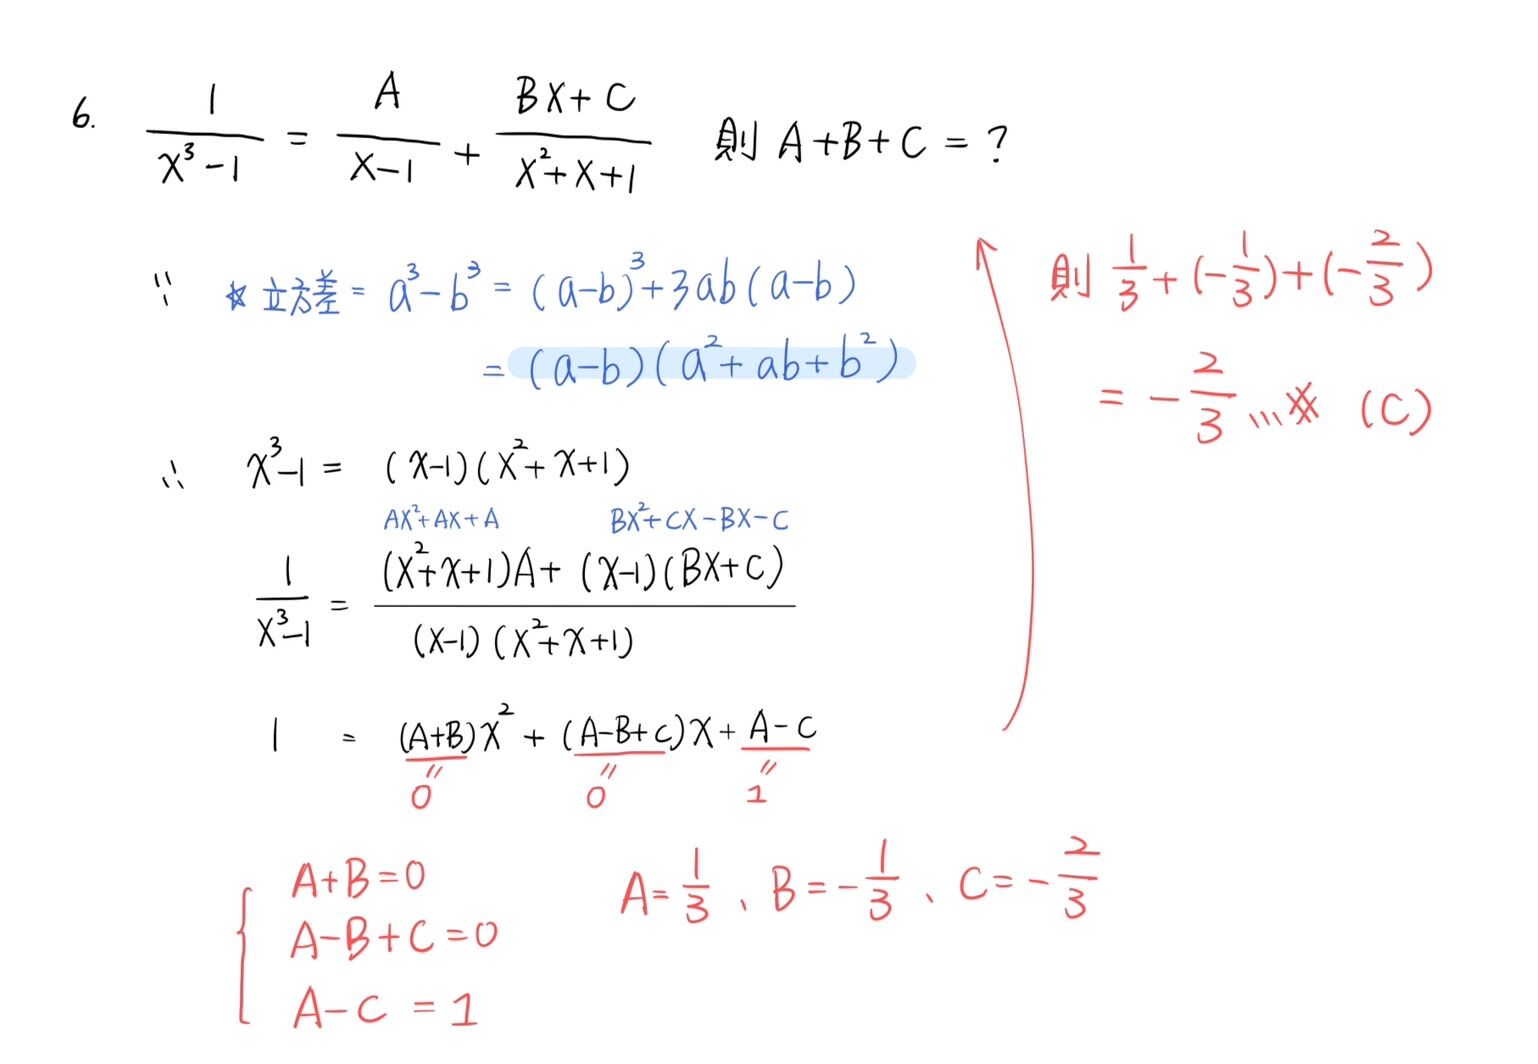 6. 1/(x³-1) = A/(x-1) + (Bx+C)/(x²+x+1) 則 A+B+C = ?
∵ ☆立方差 = a³-b³ = (a-b)³+3ab(a-b)
= (a-b)(a²+ab+b²)
∴ x³-1 = (x-1)(x²+x+1)
Ax²+Ax+A Bx²+Cx-Bx-C
1/(x³-1) = ((x²+x+1)A+(x-1)(Bx+C))/((x-1)(x²+x+1))
1 = (A+B)x²+(A-B+C)x+A-C
〃 〃 〃
0 0 1
A+B=0
A-B+C=0
A-C=1
A=1/3、B=-1/3、C=-2/3
則 1/3+(-1/3)+(-2/3)
= -2/3 ...# (C)